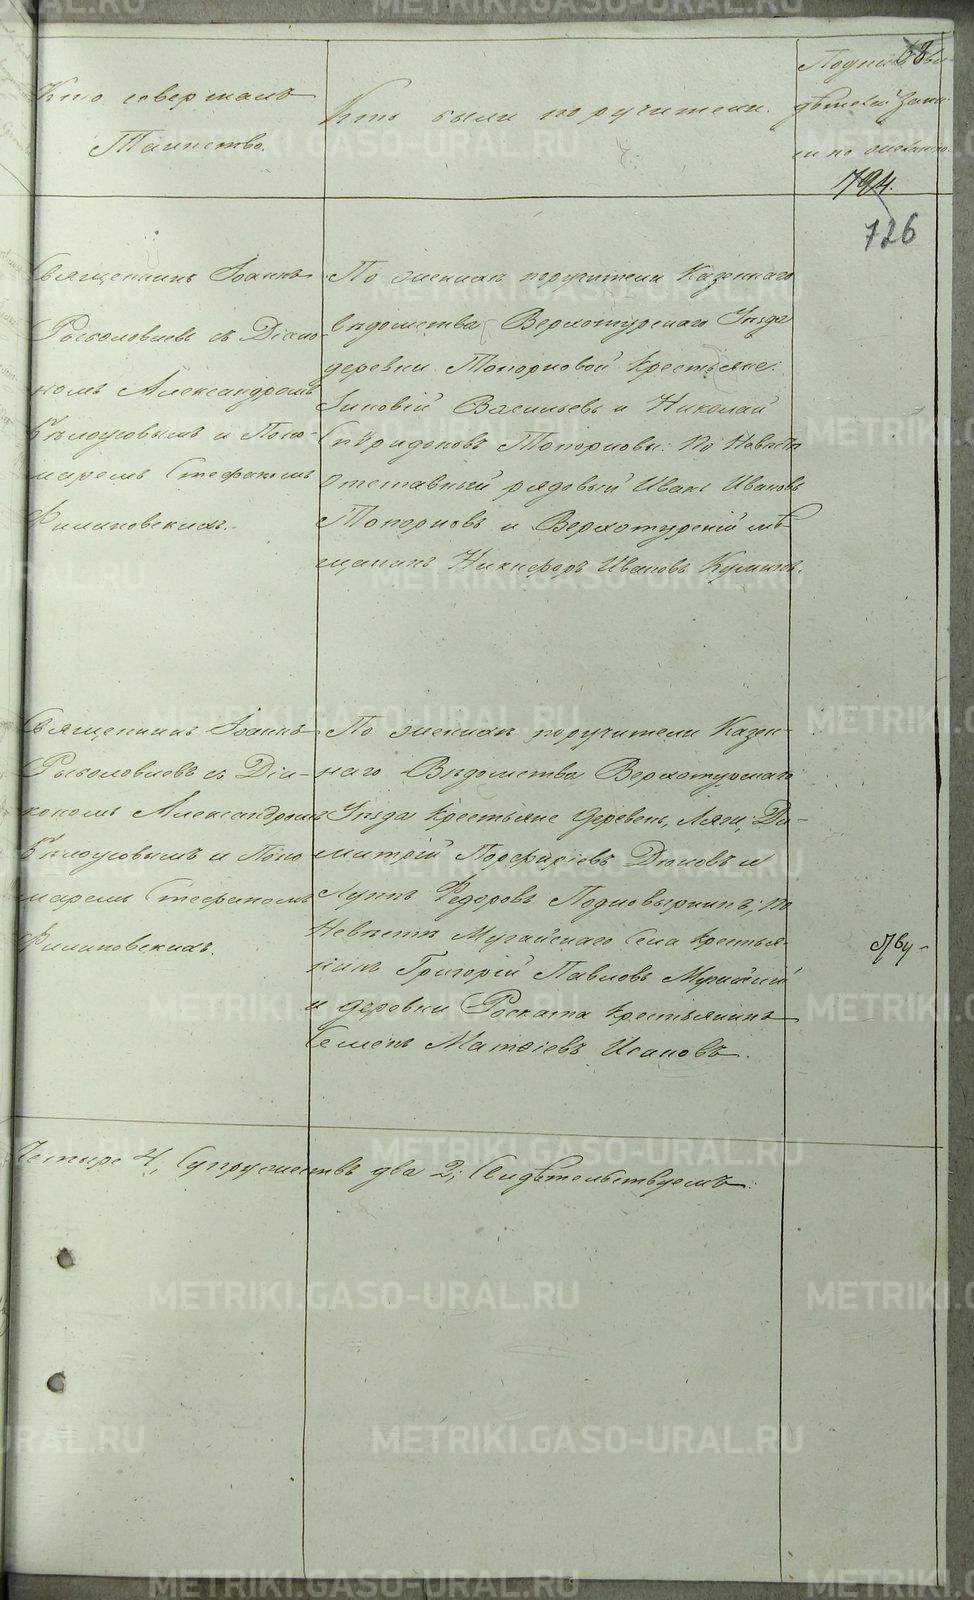 68
Кто совершалъ
Таинство.
Кто были поручители.
Подпись сви-
дѣтелей запи-
си по желанію.
794.
726
Священникъ Іоаннъ
съ Діако-
номъ Александромъ
Бѣлоусовымъ и Поно-
маремъ Стефаномъ
Филиповскихъ.
По женихѣ поручители Казеннаго
вѣдомства Верхотурскаго Уѣзда
деревни Топорковой крестьяне:
Зиновій Васильевъ и Николай
Спиридоновъ Топорковы: по Невѣстѣ
Отставный рядовый Иванъ Ивановъ
Топорковъ и Верхотурскій мѣ-
щанинъ Никифоръ Ивановъ
Священникъ Іоаннъ
съ Діа-
кономъ Александромъ
Бѣлоусовымъ и Поно
маремъ Стефаномъ
Филиповскихъ.
По женихѣ поручители Казен-
наго Вѣдомства Верхотурскаго
Уѣзда крестьяне деревень, Ляги, Ди-
митрій Порфиріевъ Дюковъ и
Лукка Федоровъ Подковыркинъ; по
Невѣстѣ Мугайскаго Села крестья-
нинъ Григорій Павловъ
и деревни Роската крестьянинъ
Семенъ Матѳіевъ Исаковъ.
Четыре 4, Супружествъ два 2; Свидѣтельствуемъ: